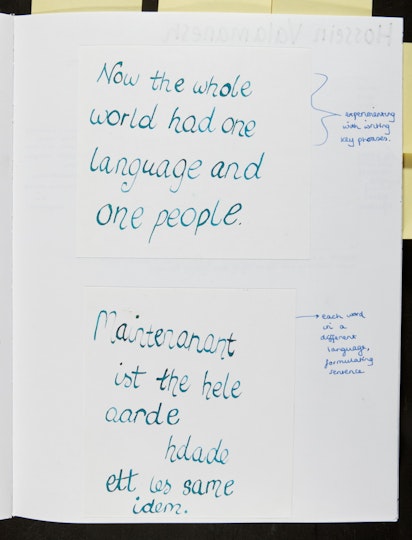 Now the whole
world had one
language and
one people.
experimenting
with writing
key phrases.
Maintenanant
ist the hele
aarde
hdade
ett les same
idem.
each word
in a
different
language,
formulating
sentence
Hossein Valamanesh